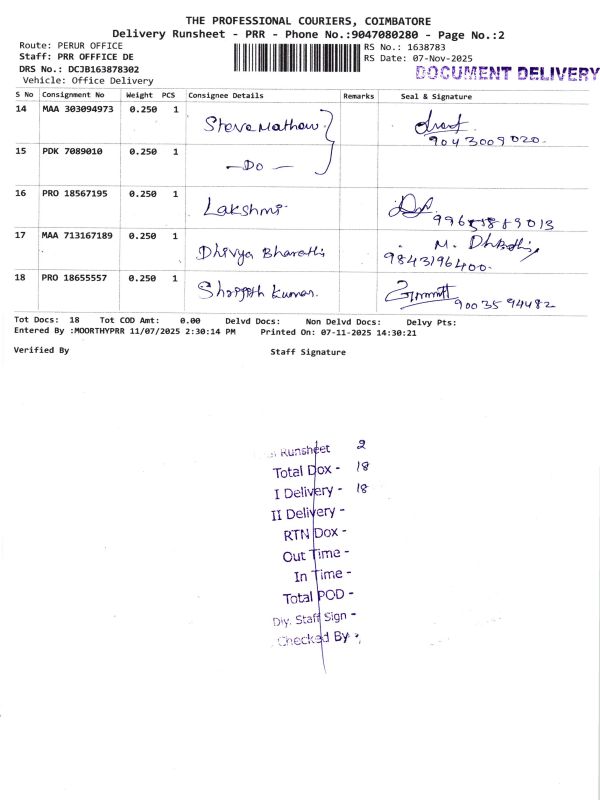 THE PROFESSIONAL COURIERS, COIMBATORE
Delivery Runsheet - PRR - Phone No.:9047080280 - Page No.:2
Route: PERUR OFFICE
RS No.: 1638783
Staff: PRR OFFFICE DE
RS Date: 07-Nov-2025
DRS No.: DCJB163878302
DOCUMENT DELIVERY
Vehicle: Office Delivery
S No Consignment No Weight PCS Consignee Details Remarks Seal & Signature
14 MAA 303094973 0.250 1 Steve Mathew
9043009020.
15 PDK 7089010 0.250 1 —Do—
16 PRO 18567195 0.250 1 Lakshmi
17 MAA 713167189 0.250 1 Dhivya Bharathi M.
9843196400.
18 PRO 18655557 0.250 1 Kumar. 9003594482
Tot Docs: 18 Tot COD Amt: 0.00 Delvd Docs: Non Delvd Docs: Delvy Pts:
Entered By :MOORTHYPRR 11/07/2025 2:30:14 PM Printed On: 07-11-2025 14:30:21
Verified By Staff Signature
Runsheet 2
Total Dox - 18
I Delivery - 18
II Delivery -
RTN Dox -
Out Time -
In Time -
Total POD -
Dly. Staff Sign -
Checked By